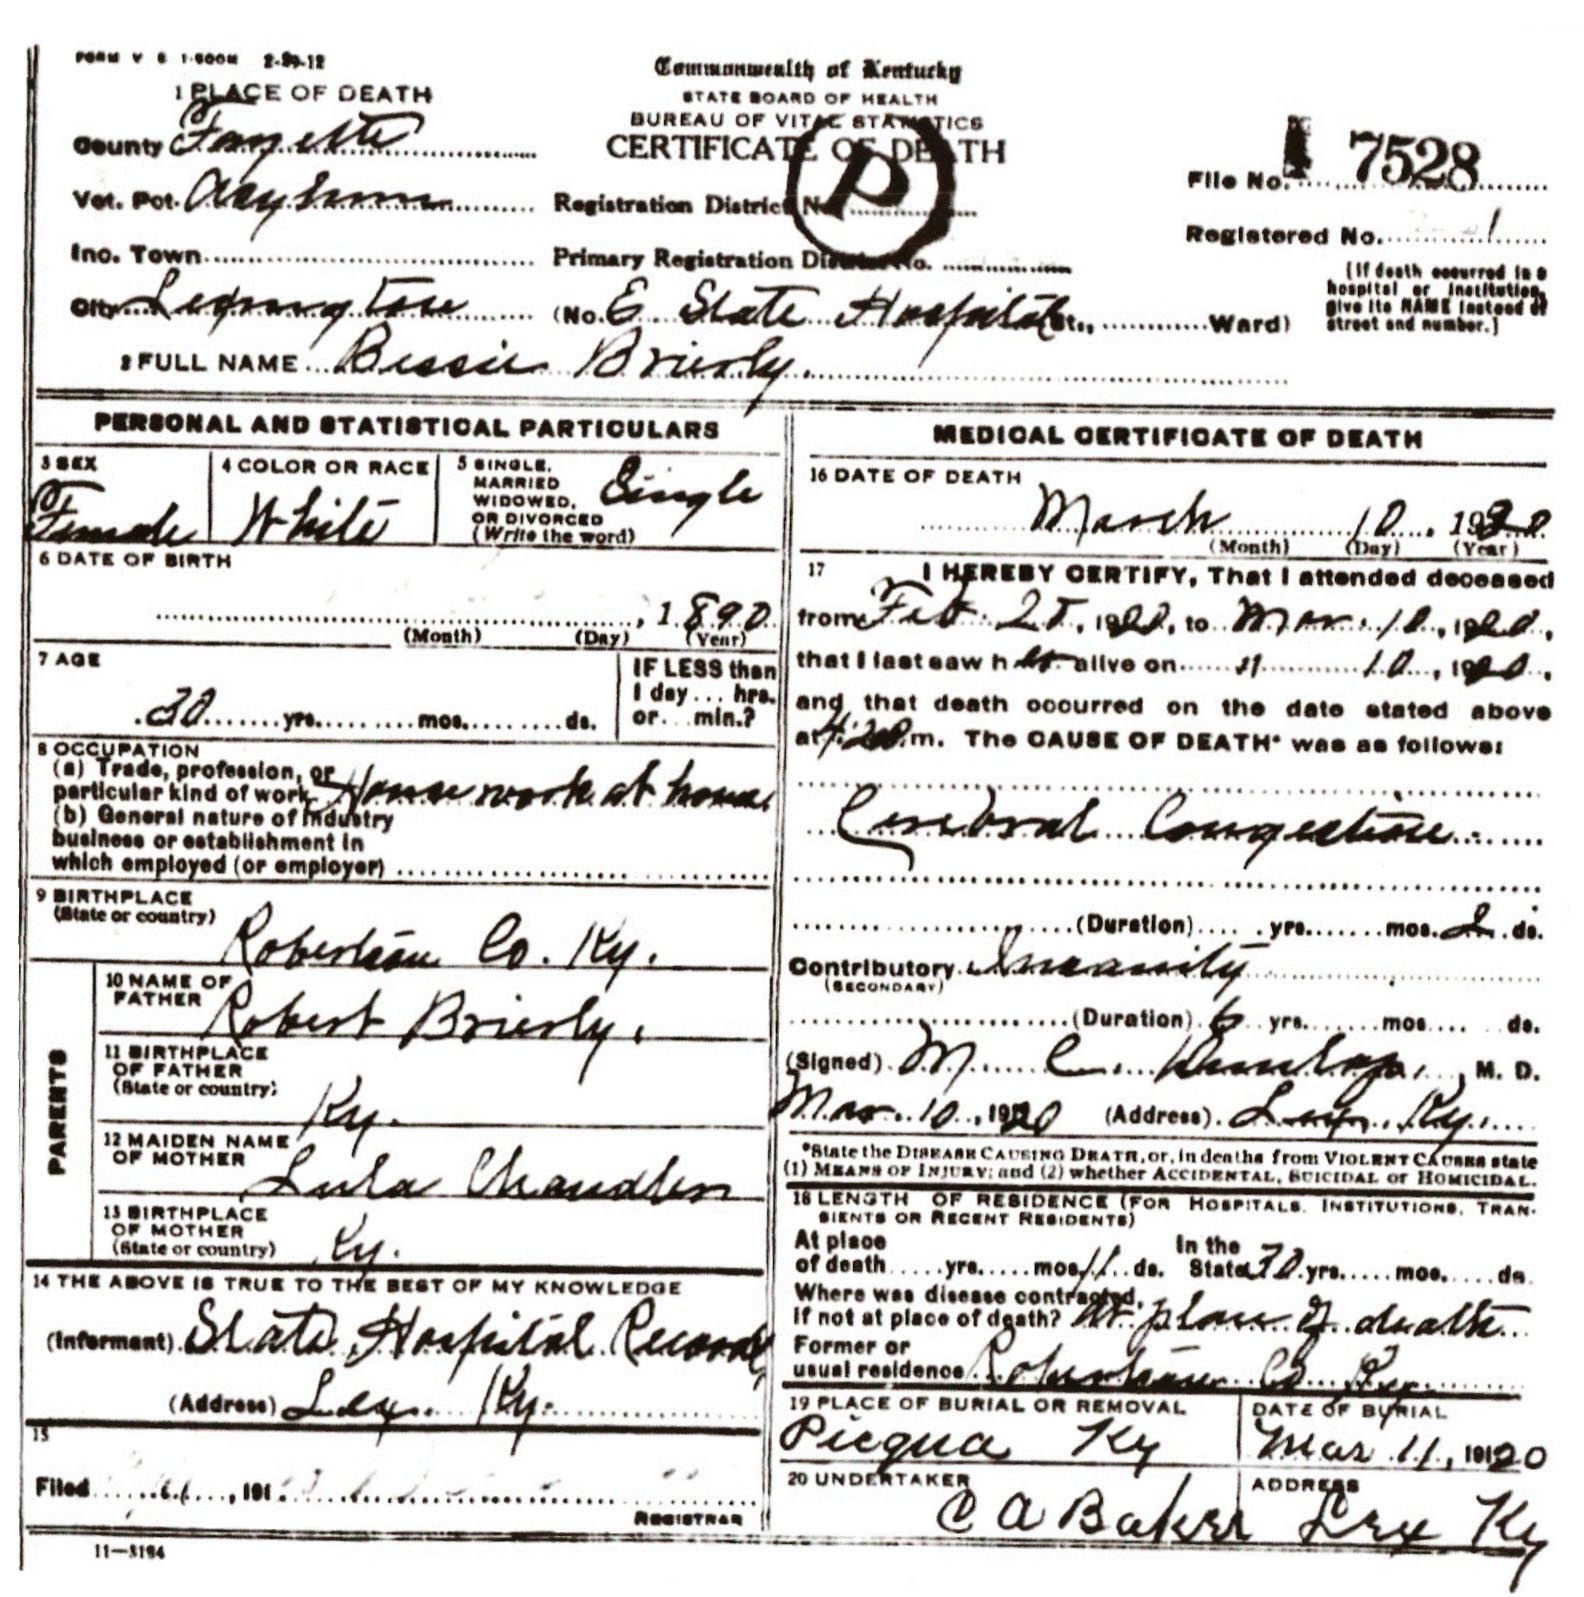 FORM V S 1-500M 2-29-12
Commonwealth of Kentucky
STATE BOARD OF HEALTH
BUREAU OF VITAL STATISTICS
CERTIFICATE OF DEATH
P
1 PLACE OF DEATH
County Fayette
Vot. Pot. Asylum
Registration District No.
File No. 7528
Inc. Town
Primary Registration District No.
Registered No.
City Lexington (No. E. State Hospital St., Ward)
(If death occurred in a
hospital or institution,
give its NAME instead of
street and number.)
2 FULL NAME Bessie Brierly.
PERSONAL AND STATISTICAL PARTICULARS
3 SEX
Female
4 COLOR OR RACE
White
5 SINGLE,
MARRIED
WIDOWED,
OR DIVORCED
(Write the word)
Single
6 DATE OF BIRTH
, 1890
(Month) (Day) (Year)
7 AGE
30 yrs. mos. ds.
IF LESS than
1 day ... hrs.
or ... min.?
8 OCCUPATION
(a) Trade, profession, or
particular kind of work House work at home
(b) General nature of industry
business or establishment in
which employed (or employer)
9 BIRTHPLACE
(State or country)
Robertson Co. Ky.
PARENTS
10 NAME OF
FATHER
Robert Brierly.
11 BIRTHPLACE
OF FATHER
(State or country)
Ky.
12 MAIDEN NAME
OF MOTHER
Lula Chandler
13 BIRTHPLACE
OF MOTHER
(State or country)
Ky.
14 THE ABOVE IS TRUE TO THE BEST OF MY KNOWLEDGE
(Informant) State Hospital Records
(Address) Lex. Ky.
15
Filed , 191
REGISTRAR
11-3184
MEDICAL CERTIFICATE OF DEATH
16 DATE OF DEATH
March 10, 1920
(Month) (Day) (Year)
17 I HEREBY CERTIFY, That I attended deceased
from Feb. , 1920, to Mar. 10, 1920,
that I last saw her alive on " 10, 1920,
and that death occurred on the date stated above
at m. The CAUSE OF DEATH* was as follows:
Cerebral Congestion
(Duration) yrs. mos. 2 ds.
Contributory Insanity
(SECONDARY)
(Duration) 6 yrs. mos. ds.
(Signed) M. C. Dunlap, M. D.
Mar. 10, 1920 (Address) Lex. Ky.
*State the DISEASE CAUSING DEATH, or, in deaths from VIOLENT CAUSES state
(1) MEANS OF INJURY; and (2) whether ACCIDENTAL, SUICIDAL or HOMICIDAL.
18 LENGTH OF RESIDENCE (FOR HOSPITALS, INSTITUTIONS, TRAN-
SIENTS OR RECENT RESIDENTS)
At place
of death yrs. mos. 11 ds.
In the
State 30 yrs. mos. ds.
Where was disease contracted,
if not at place of death? At place of death
Former or
usual residence Robertson Co. Ky.
19 PLACE OF BURIAL OR REMOVAL
Piequa Ky
DATE OF BURIAL
Mar 11, 1920
20 UNDERTAKER
C A Baker
ADDRESS
Lex Ky